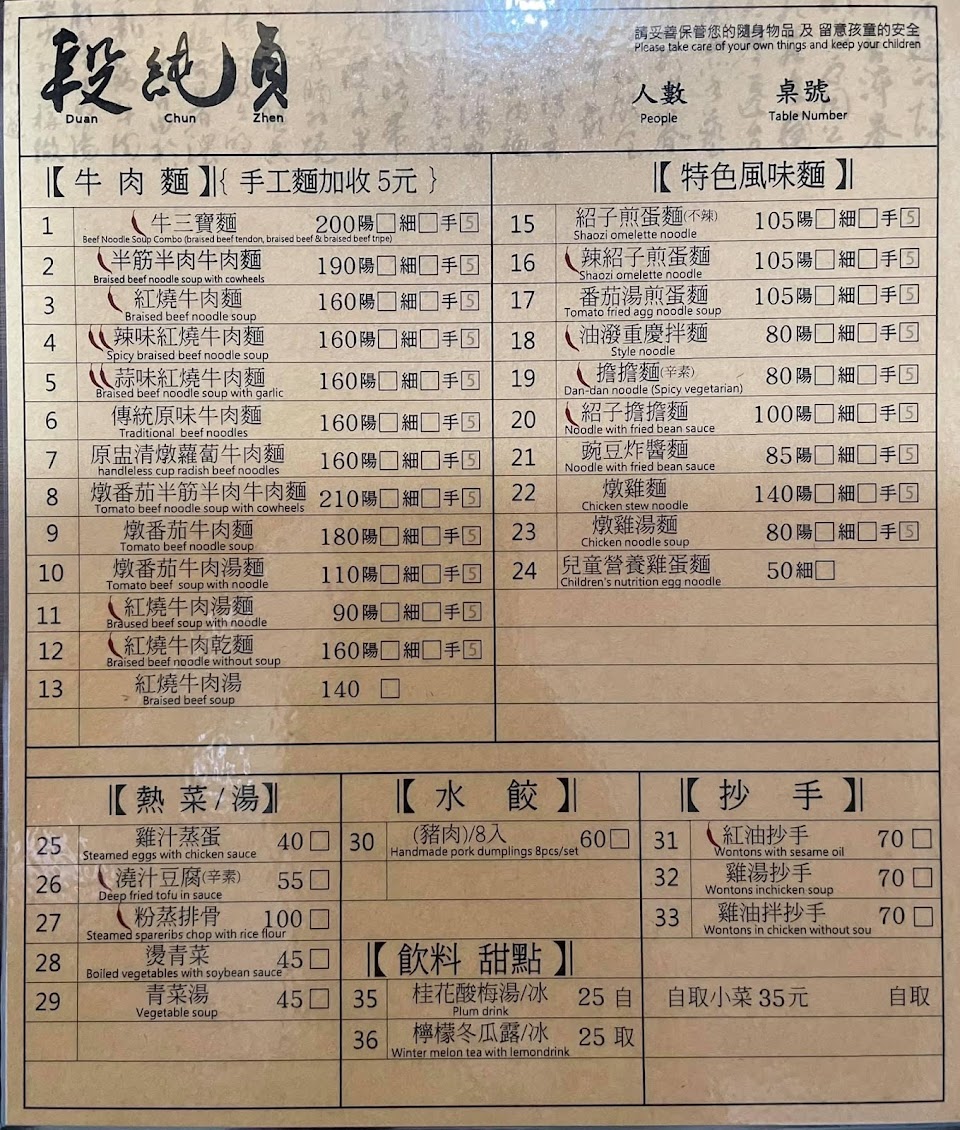 段純貞
Duan Chun Zhen
請妥善保管您的隨身物品 及 留意孩童的安全
Please take care of your own things and keep your children
人數 桌號
People Table Number
【牛肉麵】{ 手工麵加收5元 }
1 牛三寶麵 200 陽□ 細□ 手5
Beef Noodle Soup Combo (braised beef tendon, braised beef & braised beef tripe)
2 半筋半肉牛肉麵 190 陽□ 細□ 手5
Braised beef noodle soup with cowheels
3 紅燒牛肉麵 160 陽□ 細□ 手5
Braised beef noodle soup
4 辣味紅燒牛肉麵 160 陽□ 細□ 手5
Spicy braised beef noodle soup
5 蒜味紅燒牛肉麵 160 陽□ 細□ 手5
Braised beef noodle soup with garlic
6 傳統原味牛肉麵 160 陽□ 細□ 手5
Traditional beef noodles
7 原盅清燉蘿蔔牛肉麵 160 陽□ 細□ 手5
handleless cup radish beef noodles
8 燉番茄半筋半肉牛肉麵 210 陽□ 細□ 手5
Tomato beef noodle soup with cowheels
9 燉番茄牛肉麵 180 陽□ 細□ 手5
Tomato beef noodle soup
10 燉番茄牛肉湯麵 110 陽□ 細□ 手5
Tomato beef soup with noodle
11 紅燒牛肉湯麵 90 陽□ 細□ 手5
Braused beef soup with noodle
12 紅燒牛肉乾麵 160 陽□ 細□ 手5
Braised beef noodle without soup
13 紅燒牛肉湯 140 □
Braised beef soup
【特色風味麵】
15 紹子煎蛋麵(不辣) 105 陽□ 細□ 手5
Shaozi omelette noodle
16 辣紹子煎蛋麵 105 陽□ 細□ 手5
Shaozi omelette noodle
17 番茄湯煎蛋麵 105 陽□ 細□ 手5
Tomato fried agg noodle soup
18 油潑重慶拌麵 80 陽□ 細□ 手5
Style noodle
19 擔擔麵(辛素) 80 陽□ 細□ 手5
Dan-dan noodle (Spicy vegetarian)
20 紹子擔擔麵 100 陽□ 細□ 手5
Noodle with fried bean sauce
21 豌豆炸醬麵 85 陽□ 細□ 手5
Noodle with fried bean sauce
22 燉雞麵 140 陽□ 細□ 手5
Chicken stew noodle
23 燉雞湯麵 80 陽□ 細□ 手5
Chicken noodle soup
24 兒童營養雞蛋麵 50 細□
Children's nutrition egg noodle
【熱菜/湯】
25 雞汁蒸蛋 40 □
Steamed eggs with chicken sauce
26 澆汁豆腐(辛素) 55 □
Deep fried tofu in sauce
27 粉蒸排骨 100 □
Steamed spareribs chop with rice flour
28 燙青菜 45 □
Boiled vegetables with soybean sauce
29 青菜湯 45 □
Vegetable soup
【水餃】
30 (豬肉)/8入 60 □
Handmade pork dumplings 8pcs/set
【飲料 甜點】
35 桂花酸梅湯/冰 25 自
Plum drink
36 檸檬冬瓜露/冰 25 取
Winter melon tea with lemondrink
【抄手】
31 紅油抄手 70 □
Wontons with sesame oil
32 雞湯抄手 70 □
Wontons inchicken soup
33 雞油拌抄手 70 □
Wontons in chicken without sou
自取小菜35元 自取